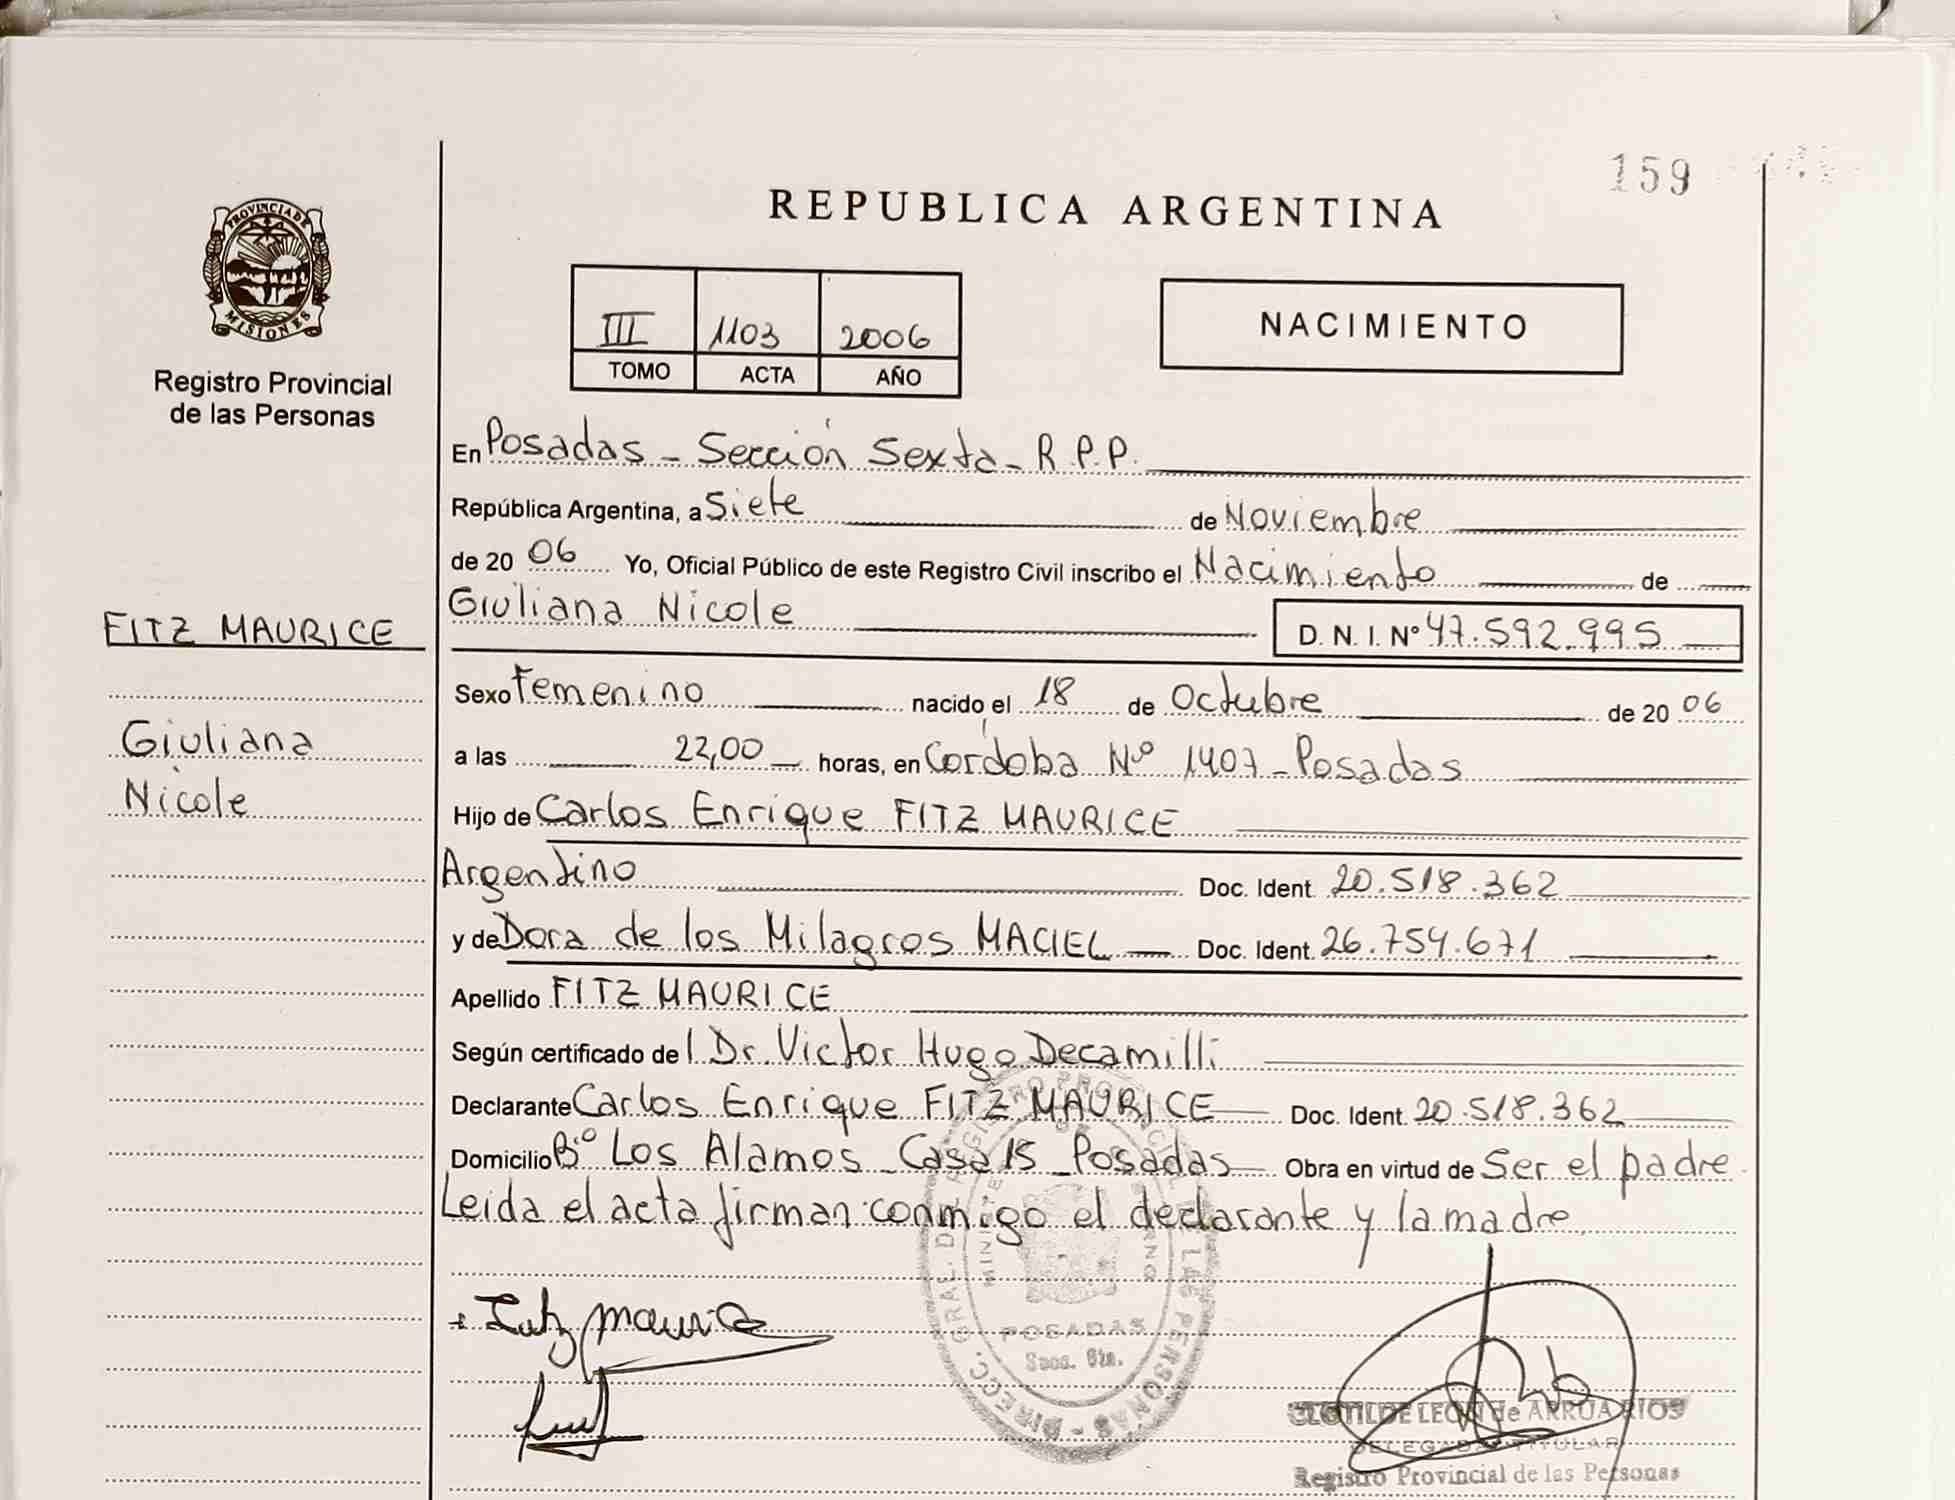 159
REPUBLICA ARGENTINA
PROVINCIA DE MISIONES
Registro Provincial
de las Personas
III 1103 2006
TOMO ACTA AÑO
NACIMIENTO
En Posadas - Sección Sexta - R.P.P.
República Argentina, a Siete de Noviembre
de 20 06 Yo, Oficial Público de este Registro Civil inscribo el Nacimiento de
Giuliana Nicole D. N. I. Nº 47.592.995
FITZ MAURICE
Giuliana
Nicole
Sexo Femenino nacido el 18 de Octubre de 20 06
a las 22,00 horas, en Córdoba Nº 1407 - Posadas
Hijo de Carlos Enrique FITZ MAURICE
Argentino Doc. Ident. 20.518.362
y de Dora de los Milagros MACIEL Doc. Ident. 26.754.671
Apellido FITZ MAURICE
Según certificado de l Dr. Victor Hugo Decamilli
Declarante Carlos Enrique FITZ MAURICE Doc. Ident. 20.518.362
Domicilio Bº Los Alamos - Casa 15 - Posadas Obra en virtud de Ser el padre
Leida el acta firman conmigo el declarante y la madre
Fitz Maurice
DIRECC. GRAL. DEL REGISTRO PROVINCIAL DE LAS PERSONAS
POSADAS
Secc. 6ta.
CLOTILDE LEON de ARRUA RIOS
DELEGADA TITULAR
Registro Provincial de las Personas